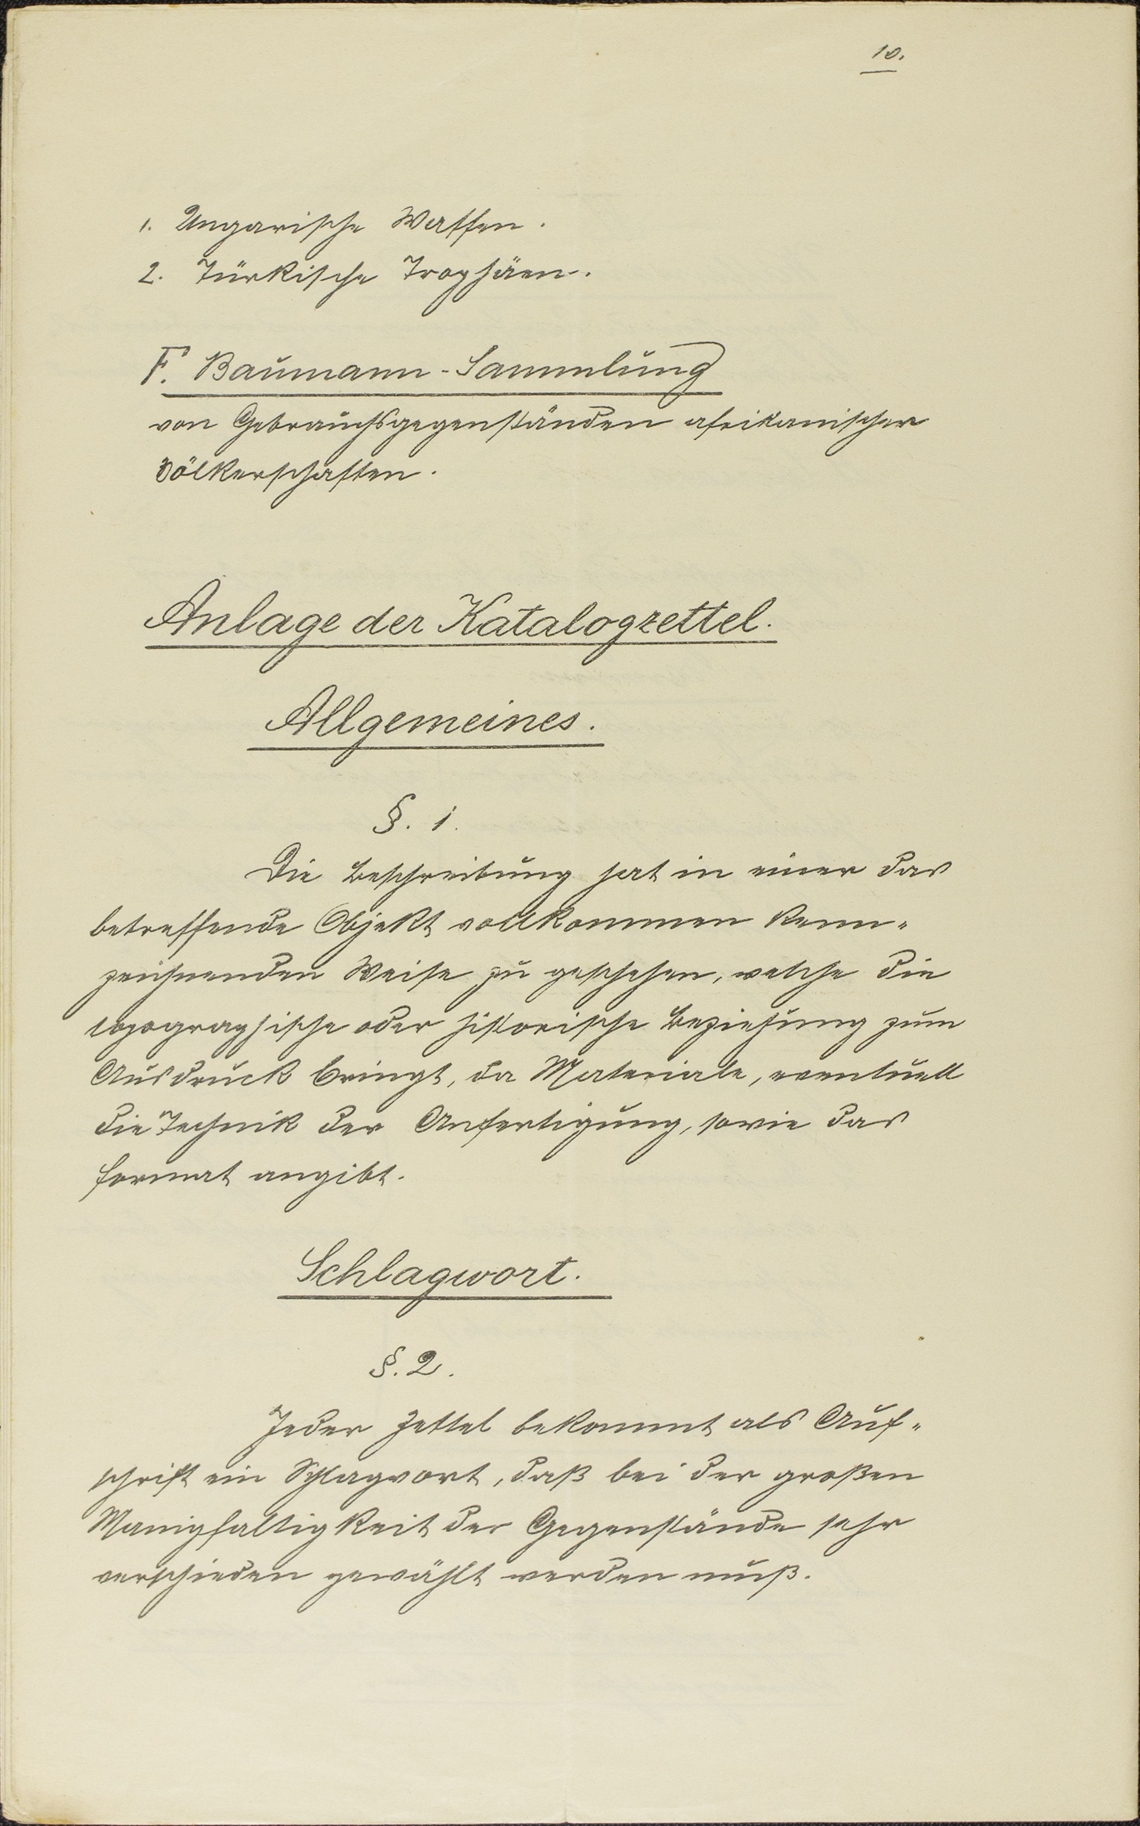 10.
1. Ungarische Waffen.
2. Türkische Trophäen.
F. Baumann-Sammlung
von Gebrauchsgegenständen afrikanischer
Völkerschaften.
Anlage der Katalogzettel.
Allgemeines.
§. 1.
Die Beschreibung hat in einer das
betreffende Objekt vollkommen kenn-
zeichnenden Weise zu geschehen, welche die
topographische oder historische Beziehung zum
Ausdruck bringt, da Materiale, eventuell
die Technik der Anfertigung, sowie das
Format angibt.
Schlagwort.
§. 2.
Jeder Zettel bekommt als Auf-
schrift ein Schlagwort, daß bei der großen
Manigfaltigkeit der Gegenstände sehr
verschieden gewählt werden muß.